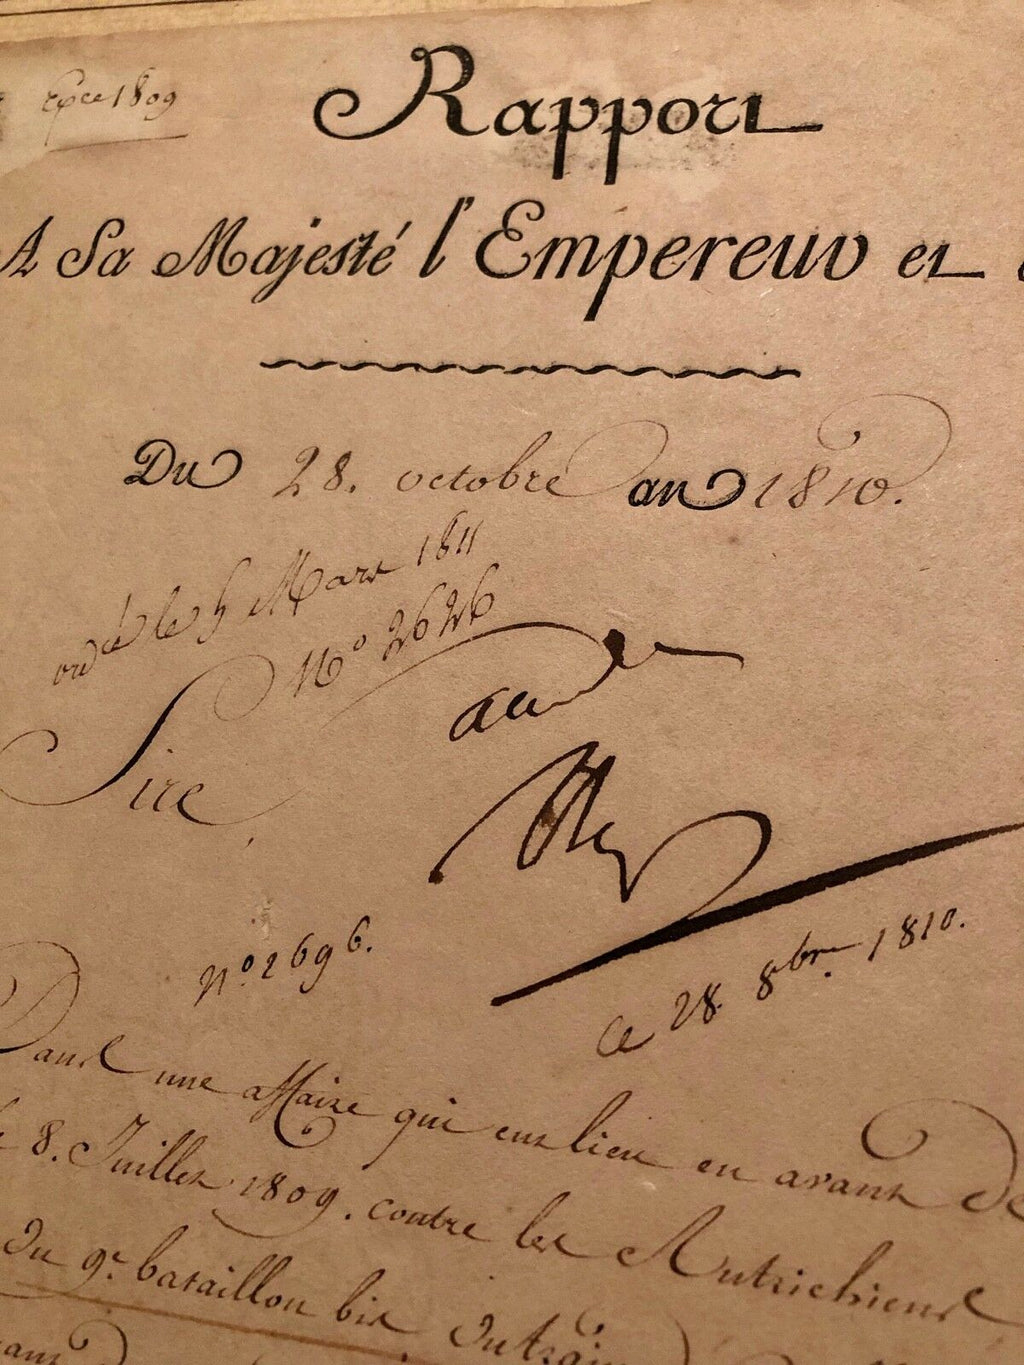 Epce 1809
Rapport
A Sa Majesté l'Empereur et
Du 28. octobre an 1810.
ordcé le 5 Mars 1811
N.º 2626
Sire,
N.º 2696.
ce 28. 8bre. 1810.
Dans une affaire qui eut lieu en avant de
8. Juillet 1809. contre les Autrichiens
du 9.e bataillon bis du train